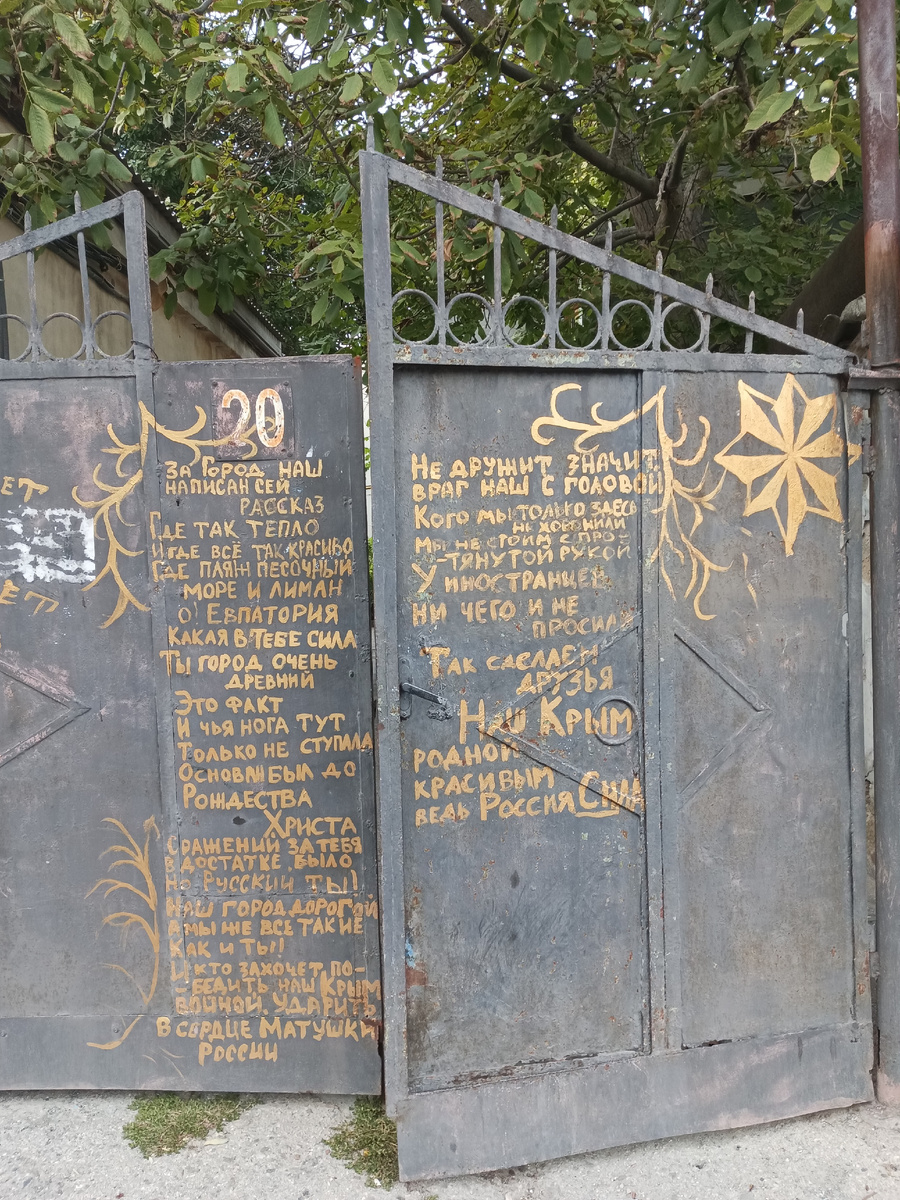 20
ЕТ
ЕТ
ЗА ГОРОД НАШ
НАПИСАН СЕЙ
РАССКАЗ
ГДЕ ТАК ТЕПЛО
И ГДЕ ВСЁ ТАК КРАСИВО
ГДЕ ПЛЯЖ ПЕСОЧНЫЙ
МОРЕ И ЛИМАН
О! ЕВПАТОРИЯ
КАКАЯ В ТЕБЕ СИЛА
ТЫ ГОРОД ОЧЕНЬ
ДРЕВНИЙ
ЭТО ФАКТ
И ЧЬЯ НОГА ТУТ
ТОЛЬКО НЕ СТУПАЛА
ОСНОВАН БЫЛ ДО
РОЖДЕСТВА
ХРИСТА
СРАЖЕНИЙ ЗА ТЕБЯ
В ДОСТАТКЕ БЫЛО
НО РУССКИЙ ТЫ!
НАШ ГОРОД ДОРОГОЙ
А МЫ ЖЕ ВСЕ ТАКИЕ
КАК И ТЫ!!
И КТО ЗАХОЧЕТ ПО-
-БЕДИТЬ НАШ КРЫМ
ВОЙНОЙ УДАРИТЬ
В СЕРДЦЕ МАТУШКИ
РОССИИ
НЕ ДРУЖИТ ЗНАЧИТ
ВРАГ НАШ С ГОЛОВОЙ
КОГО МЫ ТОЛЬКО ЗДЕСЬ
НЕ ХОРОНИЛИ
МЫ НЕ СТОИМ С ПРО-
-ТЯНУТОЙ РУКОЙ
У ИНОСТРАНЦЕВ
НИ ЧЕГО И НЕ
ПРОСИЛИ
ТАК СДЕЛАЕМ
ДРУЗЬЯ
НАШ КРЫМ
РОДНОЙ
КРАСИВЫМ
ВЕДЬ РОССИЯ СИЛА